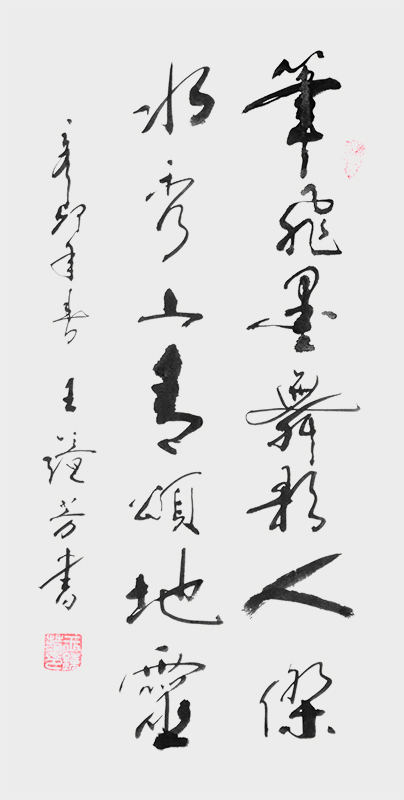 筆飛墨舞人傑
水秀山青頌地靈
辛卯年春 王芳書